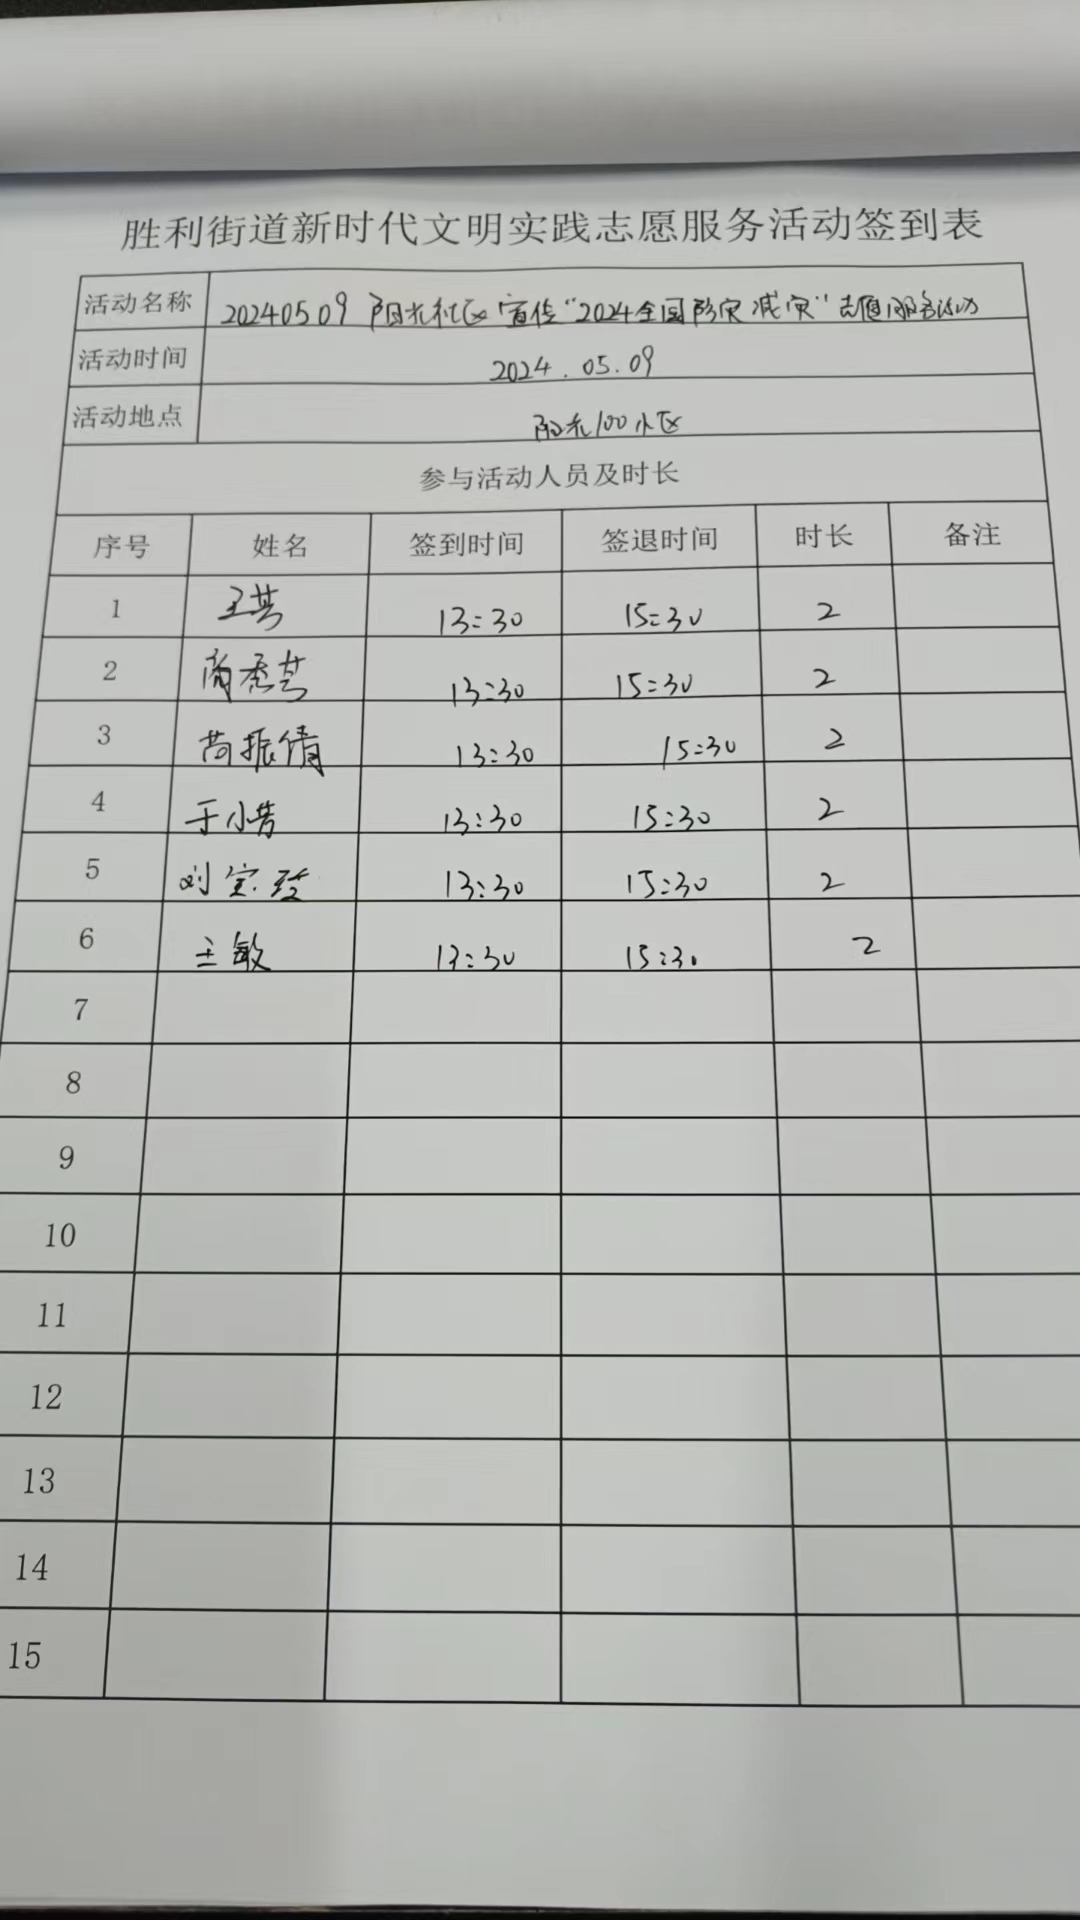 胜利街道新时代文明实践志愿服务活动签到表
活动名称 20240509 阳光社区宣传“2024全国防灾减灾”志愿服务活动
活动时间 2024.05.09
活动地点 阳光100小区
参与活动人员及时长
序号 姓名 签到时间 签退时间 时长 备注
1 13:30 15:30 2
2 13:30 15:30 2
3 13:30 15:30 2
4 于小芳 13:30 15:30 2
5 13:30 15:30 2
6 王敏 13:30 15:30 2
7
8
9
10
11
12
13
14
15